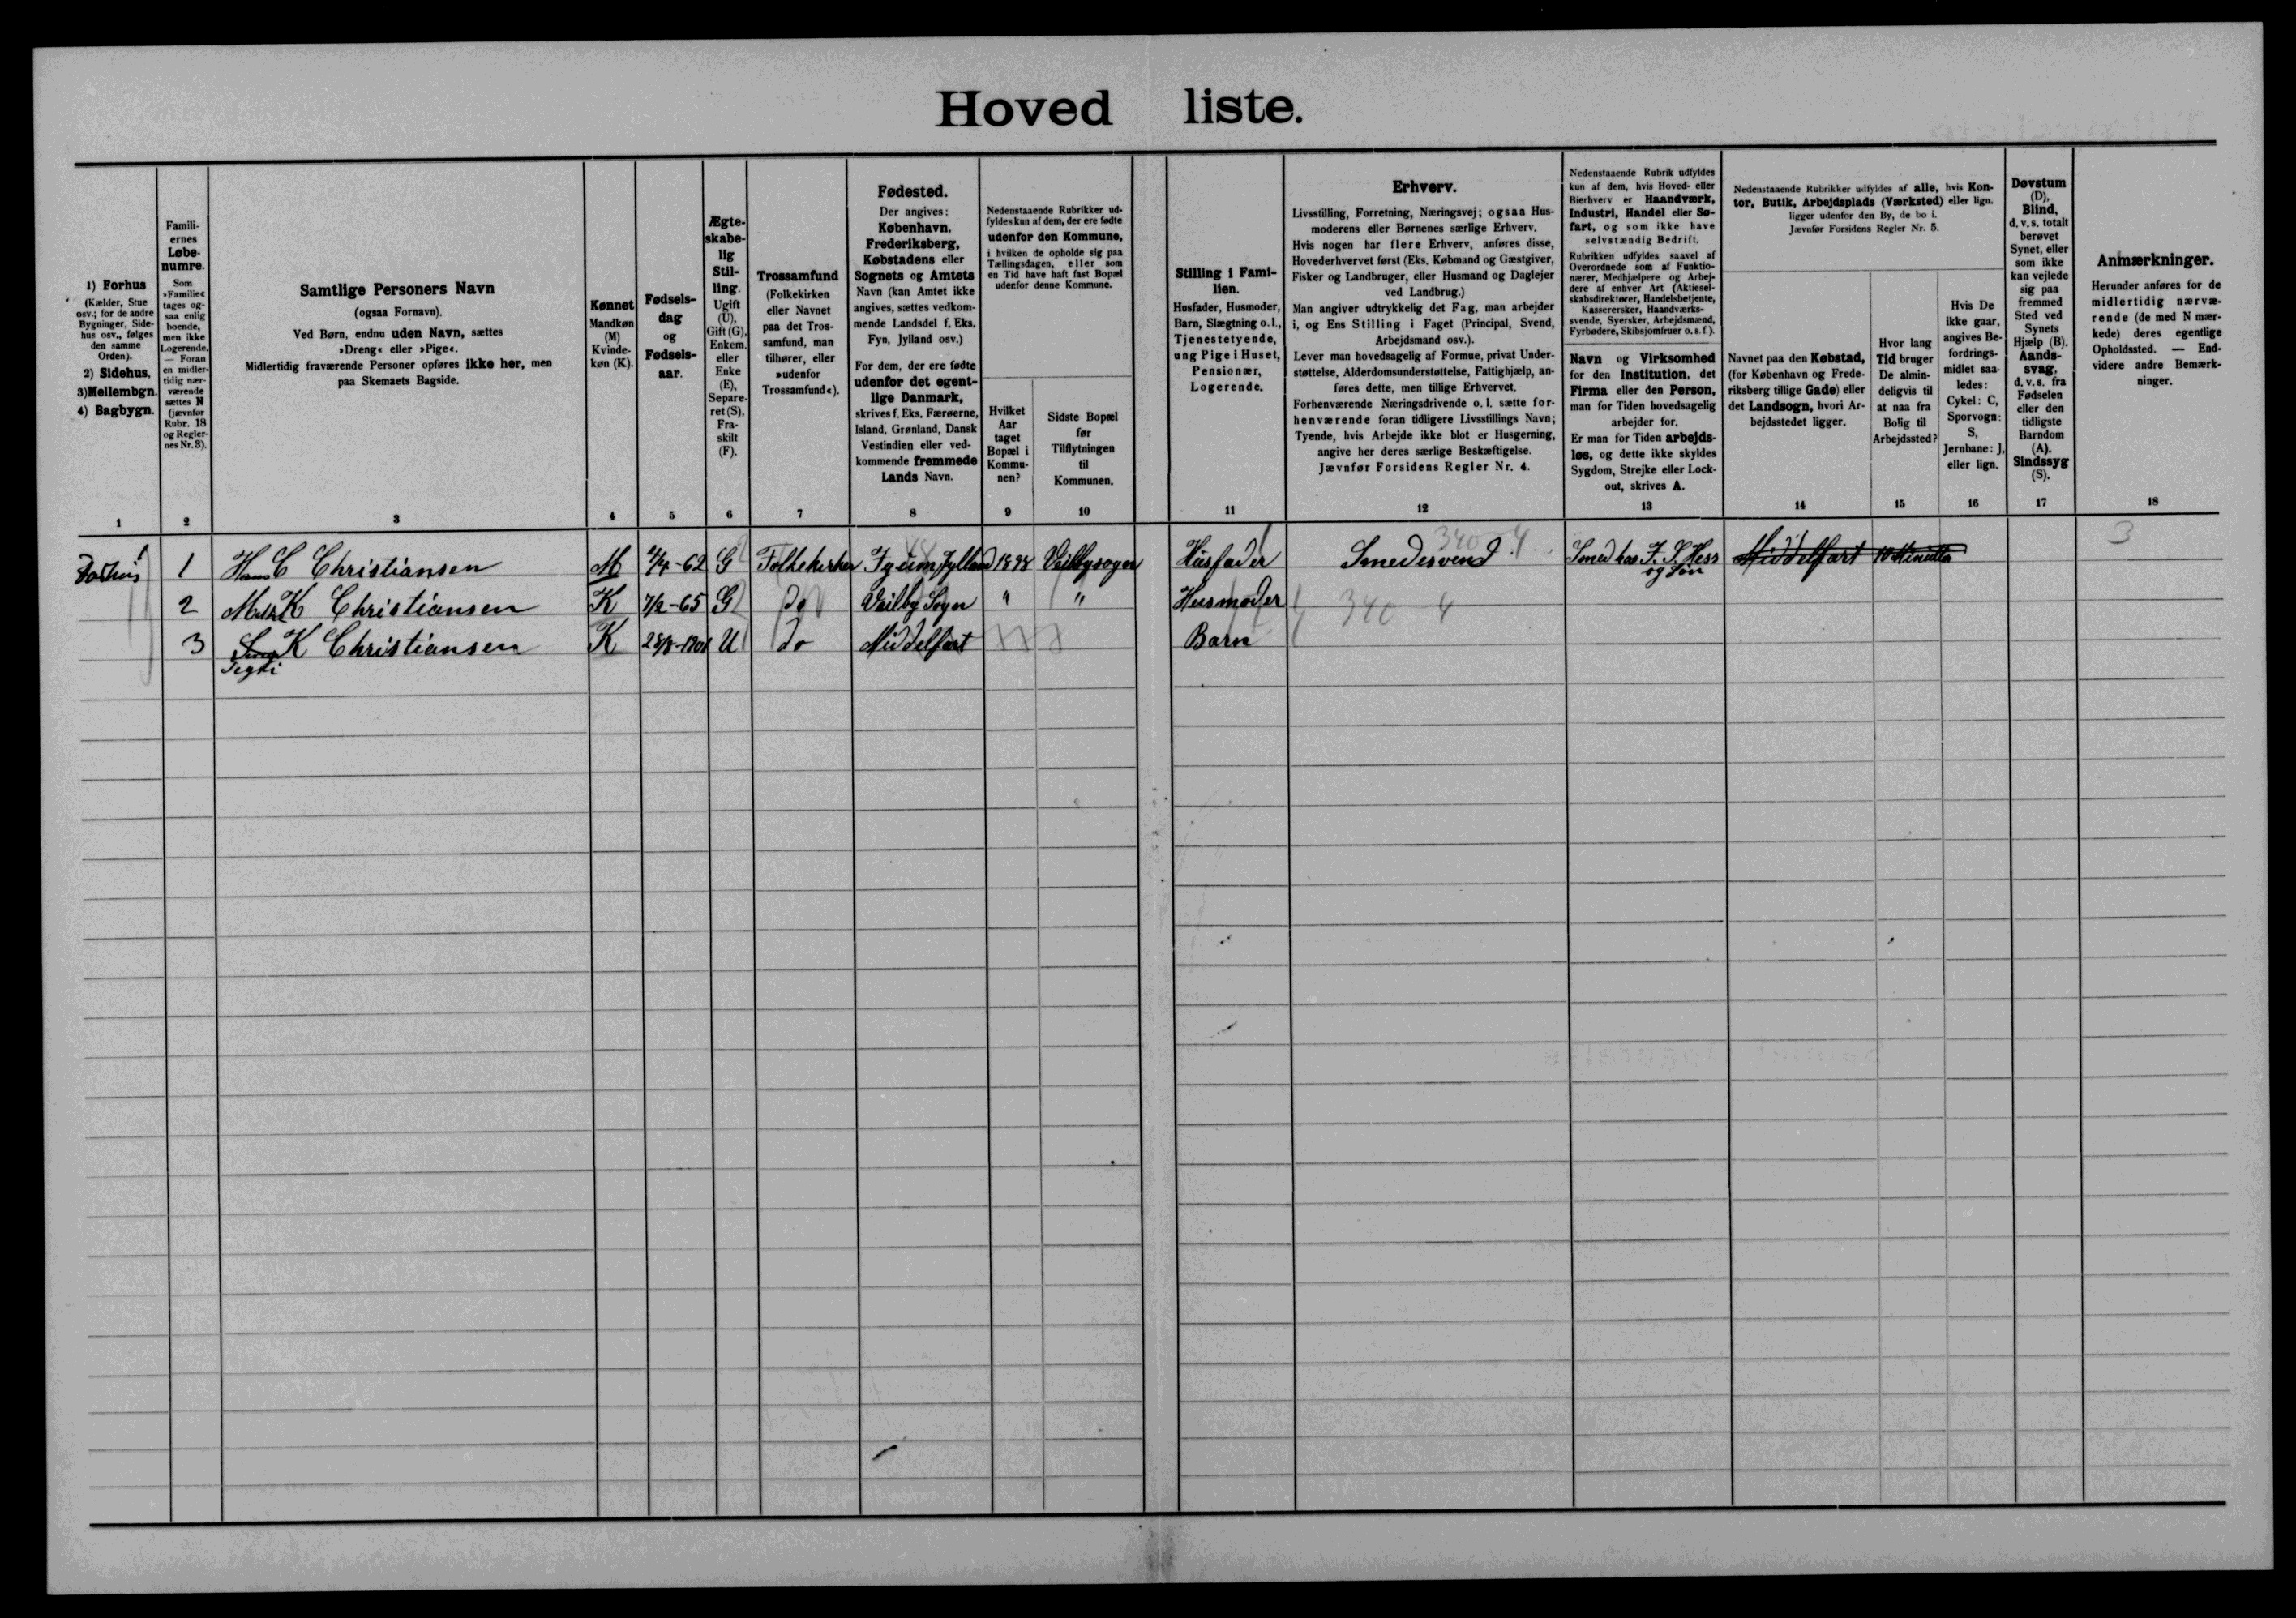 Hoved liste.
1) Forhus
(Kælder, Stue
osv.; for de andre
Bygninger, Side-
hus osv., følges
den samme
Orden).
2) Sidehus,
3) Mellembgn.
4) Bagbygn.
1
Famili-
ernes
Løbe-
numre.
Som
»Familie«
tages og-
saa enlig
boende,
men ikke
Logerende.
— Foran
en midler-
tidig nær-
værende
sættes N
(jævnfør
Rubr. 18
og Regler-
nes Nr. 3).
2
Samtlige Personers Navn
(ogsaa Fornavn).
Ved Børn, endnu uden Navn, sættes
»Dreng« eller »Pige«.
Midlertidig fraværende Personer opføres ikke her, men
paa Skemaets Bagside.
3
Kønnet
Mandkøn
(M)
Kvinde-
køn (K).
4
Fødsels-
dag
og
Fødsels-
aar.
5
Ægte-
skabe-
lig
Stil-
ling.
Ugift
(U),
Gift (G),
Enkem.
eller
Enke
(E),
Separe-
ret (S),
Fra-
skilt
(F).
6
Trossamfund
(Folkekirken
eller Navnet
paa det Tros-
samfund, man
tilhører, eller
»udenfor
Trossamfund«).
7
Fødested.
Der angives:
København,
Frederiksberg,
Købstadens eller
Sognets og Amtets
Navn (kan Amtet ikke
angives, sættes vedkom-
mende Landsdel f. Eks.
Fyn, Jylland osv.)
For dem, der ere fødte
udenfor det egent-
lige Danmark,
skrives f. Eks. Færøerne,
Island, Grønland, Dansk
Vestindien eller ved-
kommende fremmede
Lands Navn.
8
Nedenstaaende Rubrikker ud-
fyldes kun af dem, der ere fødte
udenfor den Kommune,
i hvilken de opholde sig paa
Tællingsdagen, eller som
en Tid have haft fast Bopæl
udenfor denne Kommune.
Hvilket
Aar
taget
Bopæl i
Kommu-
nen?
9
Sidste Bopæl
før
Tilflytningen
til
Kommunen.
10
Stilling i Fami-
lien.
Husfader, Husmoder,
Barn, Slægtning o. l.,
Tjenestetyende,
ung Pige i Huset,
Pensionær,
Logerende.
11
Erhverv.
Livsstilling, Forretning, Næringsvej; ogsaa Hus-
moderens eller Børnenes særlige Erhverv.
Hvis nogen har flere Erhverv, anføres disse,
Hovederhvervet først (Eks. Købmand og Gæstgiver,
Fisker og Landbruger, eller Husmand og Daglejer
ved Landbrug.)
Man angiver udtrykkelig det Fag, man arbejder
i, og Ens Stilling i Faget (Principal, Svend,
Arbejdsmand osv.).
Lever man hovedsagelig af Formue, privat Under-
støttelse, Alderdomsunderstøttelse, Fattighjælp, an-
føres dette, men tillige Erhvervet.
Forhenværende Næringsdrivende o. l. sætte for-
henværende foran tidligere Livsstillings Navn;
Tyende, hvis Arbejde ikke blot er Husgerning,
angive her deres særlige Beskæftigelse.
Jævnfør Forsidens Regler Nr. 4.
12
Nedenstaaende Rubrik udfyldes
kun af dem, hvis Hoved- eller
Bierhverv er Haandværk,
Industri, Handel eller Sø-
fart, og som ikke have
selvstændig Bedrift.
Rubrikken udfyldes saavel af
Overordnede som af Funktio-
nærer, Medhjælpere og Arbej-
dere af enhver Art (Aktiesel-
skabsdirektører, Handelsbetjente,
Kasserersker, Haandværks-
svende, Syersker, Arbejdsmænd,
Fyrbødere, Skibsjomfruer o. s. f.).
Navn og Virksomhed
for den Institution, det
Firma eller den Person,
man for Tiden hovedsagelig
arbejder for.
Er man for Tiden arbejds-
løs, og dette ikke skyldes
Sygdom, Strejke eller Lock-
out, skrives A.
13
Nedenstaaende Rubrikker udfyldes af alle, hvis Kon-
tor, Butik, Arbejdsplads (Værksted) eller lign.
ligger udenfor den By, de bo i.
Jævnfør Forsidens Regler Nr. 5.
Navnet paa den Købstad,
(for København og Frede-
riksberg tillige Gade) eller
det Landsogn, hvori Ar-
bejdsstedet ligger.
14
Hvor lang
Tid bruger
De almin-
deligvis til
at naa fra
Bolig til
Arbejdssted?
15
Hvis De
ikke gaar,
angives Be-
fordrings-
midlet saa-
ledes:
Cykel: C,
Sporvogn:
S,
Jernbane: J,
eller lign.
16
Døvstum
(D),
Blind,
d. v. s. totalt
berøvet
Synet, eller
som ikke
kan vejlede
sig paa
fremmed
Sted ved
Synets
Hjælp (B).
Aands-
svag,
d. v. s. fra
Fødselen
eller den
tidligste
Barndom
(A).
Sindssyg
(S).
17
Anmærkninger.
Herunder anføres for de
midlertidig nærvæ-
rende (de med N mær-
kede) deres egentlige
Opholdssted. — End-
videre andre Bemærk-
ninger.
18
Forhus 1 Hans C Christiansen M 2/4-62 G Folkekirken Jylland 1898 Veilbysogn Husfader Smedesvend 340 4 Smed hos J. S. Hess og Søn Middelfart 10 Minutter 3
2 K Christiansen K 7/2-65 G do Veilby Sogn " " Husmoder 340 4
3 K Christiansen K 28/8-1901 U do Middelfart Barn